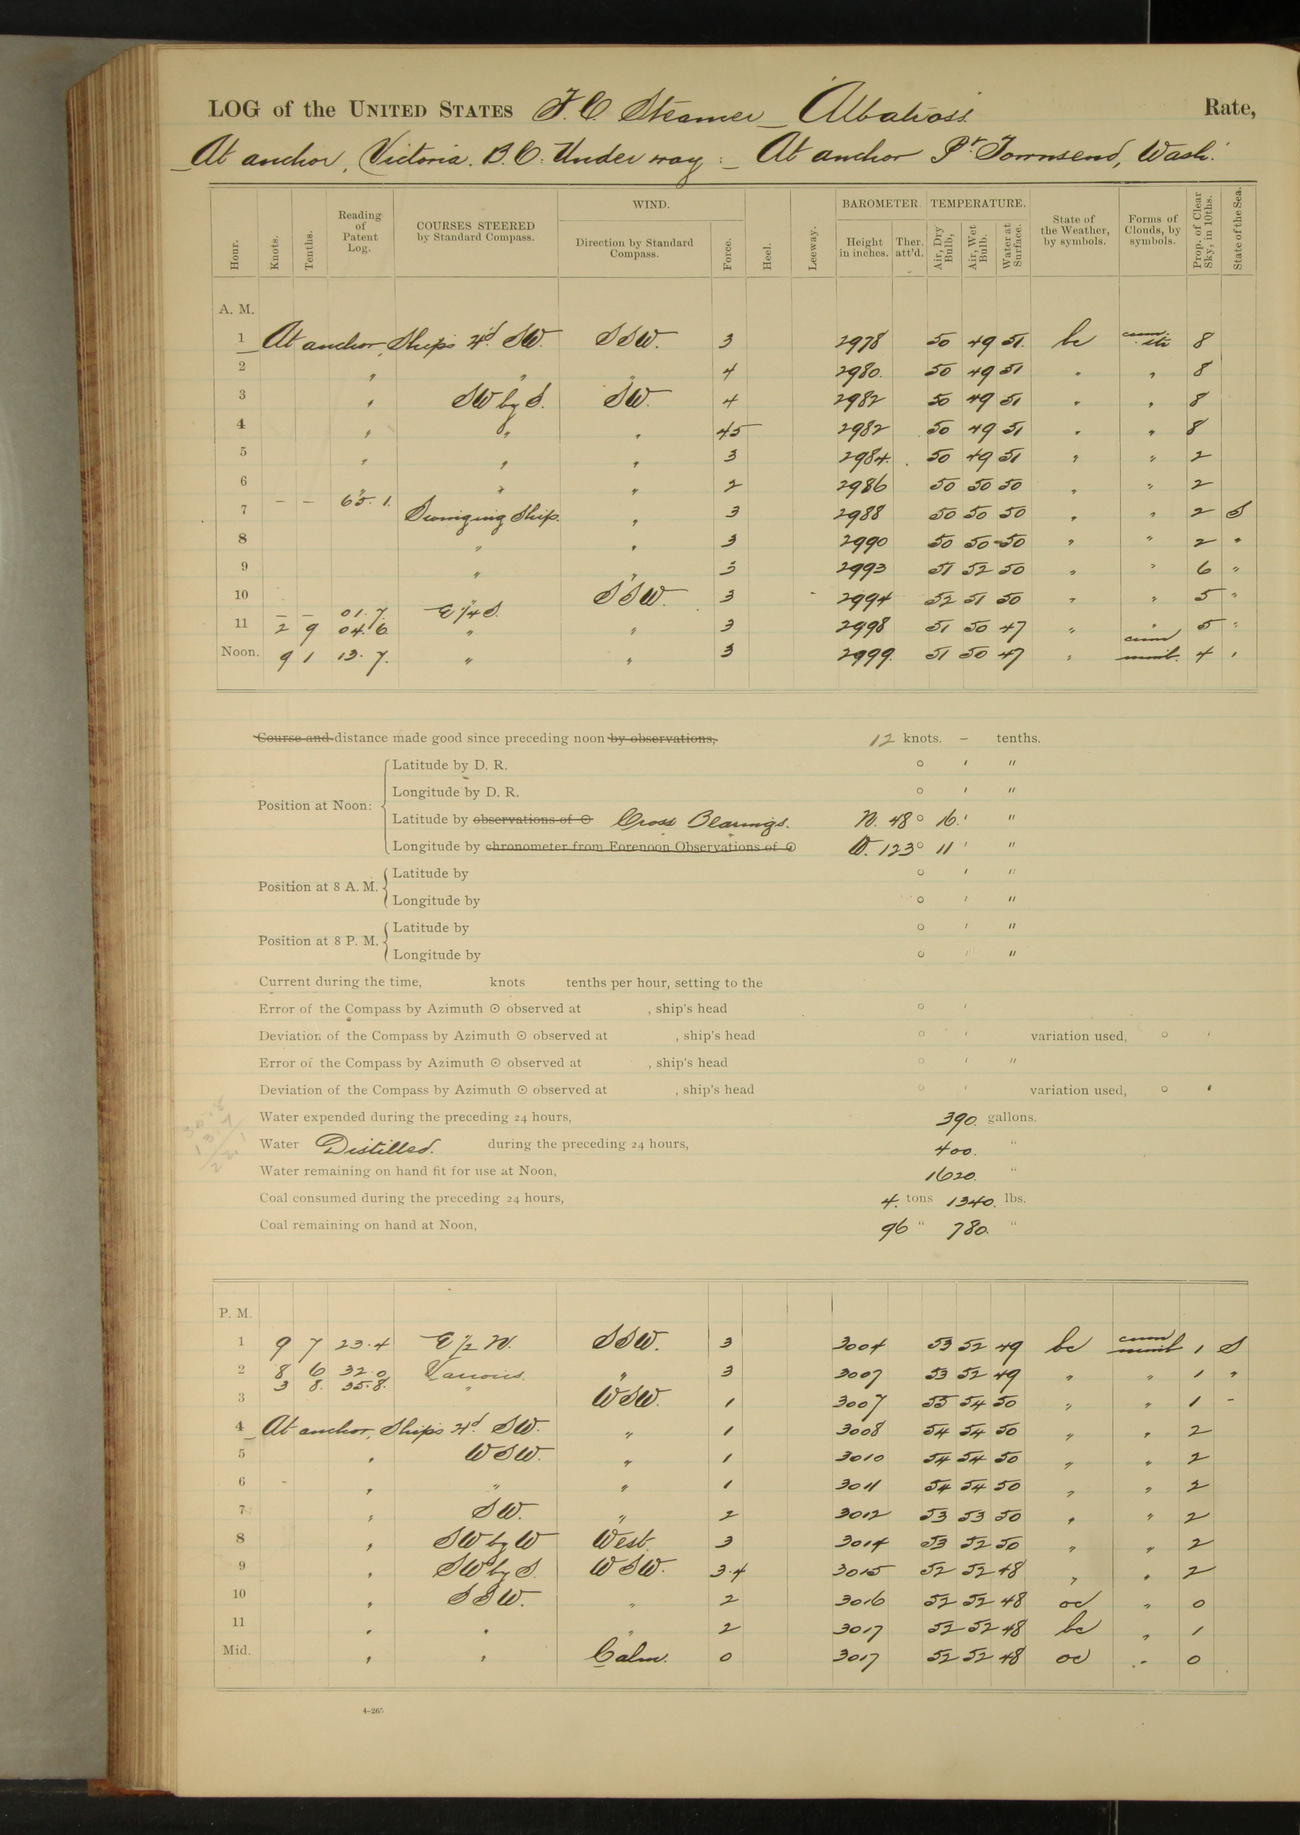 LOG of the UNITED STATES F. C. Steamer Albatross Rate,
At anchor, Victoria. B.C. Under way :— At anchor Pt. Townsend, Wash.
Hour. Knots. Tenths. Reading of Patent Log. COURSES STEERED by Standard Compass. WIND. Direction by Standard Compass. Force. Heel. Leeway. BAROMETER. Height in inches. Ther. att'd. TEMPERATURE. Air, Dry Bulb, Air, Wet Bulb. Water at Surface. State of the Weather, by symbols. Forms of Clouds, by symbols. Prop. of Clear Sky, in 10ths. State of the Sea.
A. M.
1 At anchor, Ship's H'd. SW. SSW. 3 2978 50 49 51. bc cum. str 8
2 " " " 4 2980. 50 49 51 " " 8
3 " SW by S. SW. 4 2982 50 49 51 " " 8
4 " " " 45 2982 50 49 51 " " 8
5 " " " 3 2984. 50 49 51 " " 2
6 " " " 2 2986 50 50 50 " " 2
7 – – 65. 1. Swinging Ship. " 3 2988 50 50 50 " " 2 S
8 " " 3 2990 50 50 50 " " 2 "
9 " " 3 2993 51 52 50 " " 6 "
10 – – 01. 7. E 1/4 S. SSW. 3 2994 52 51 50 " " 5 "
11 2 9 04. 6 " " 3 2998 51 50 47 " " 5 "
Noon. 9 1 13. 7. " " 3 2999. 51 50 47 " cum nimb. 4 "
Course and distance made good since preceding noon by observations, 12 knots. – tenths.
Position at Noon:
Latitude by D. R. ° ′ ″
Longitude by D. R. ° ′ ″
Latitude by observations of ☉ Cross Bearings. N. 48° 16.′ ″
Longitude by chronometer from Forenoon Observations of ☉ W. 123° 11′ ″
Position at 8 A. M.
Latitude by ° ′ ″
Longitude by ° ′ ″
Position at 8 P. M.
Latitude by ° ′ ″
Longitude by ° ′ ″
Current during the time, knots tenths per hour, setting to the
Error of the Compass by Azimuth ☉ observed at , ship's head ° ′
Deviation of the Compass by Azimuth ☉ observed at , ship's head ° ′ variation used, ° ′
Error of the Compass by Azimuth ☉ observed at , ship's head ° ′ ″
Deviation of the Compass by Azimuth ☉ observed at , ship's head ° ′ variation used, ° ′
Water expended during the preceding 24 hours, 390. gallons.
Water Distilled. during the preceding 24 hours, 400. "
Water remaining on hand fit for use at Noon, 1620. "
Coal consumed during the preceding 24 hours, 4. tons 1340. lbs.
Coal remaining on hand at Noon, 96 " 780. "
P. M.
1 9 7 23.4 E 1/2 N. SSW. 3 3004 53 52 49 bc cum nimb 1 S
2 8 6 32.0 Various. " 3 3007 53 52 49 " " 1 "
3 8. 35.8. "
3 WSW. 1 3007 55 54 50 " " 1 -
4 At anchor, Ship's H'd. SW. " 1 3008 54 54 50 " " 2
5 " WSW. " 1 3010 54 54 50 " " 2
6 " " " 1 3011 54 54 50 " " 2
7 " SW. " 2 3012 53 53 50 " " 2
8 " SW by W West. 3 3014 53 52 50 " " 2
9 " SW by S. WSW. 3.4 3015 52 52 48 " " 2
10 " SSW. " 2 3016 52 52 48 oc " 0
11 " " " 2 3017 52 52 48 bc " 1
Mid. " " Calm. 0 3017 52 52 48 oc " 0
4–265